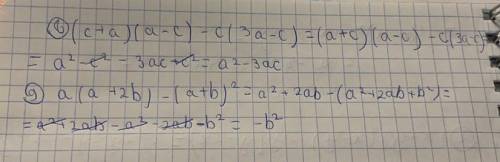 б) (c+a)(a-c) - c(3a-c) = (a+c)(a-c) - c(3a-c)
= a² - c² - 3ac + c² = a² - 3ac
g) a(a+2b) - (a+b)² = a² + 2ab - (a² + 2ab + b²) =
= a² + 2ab - a² - 2ab - b² = -b²